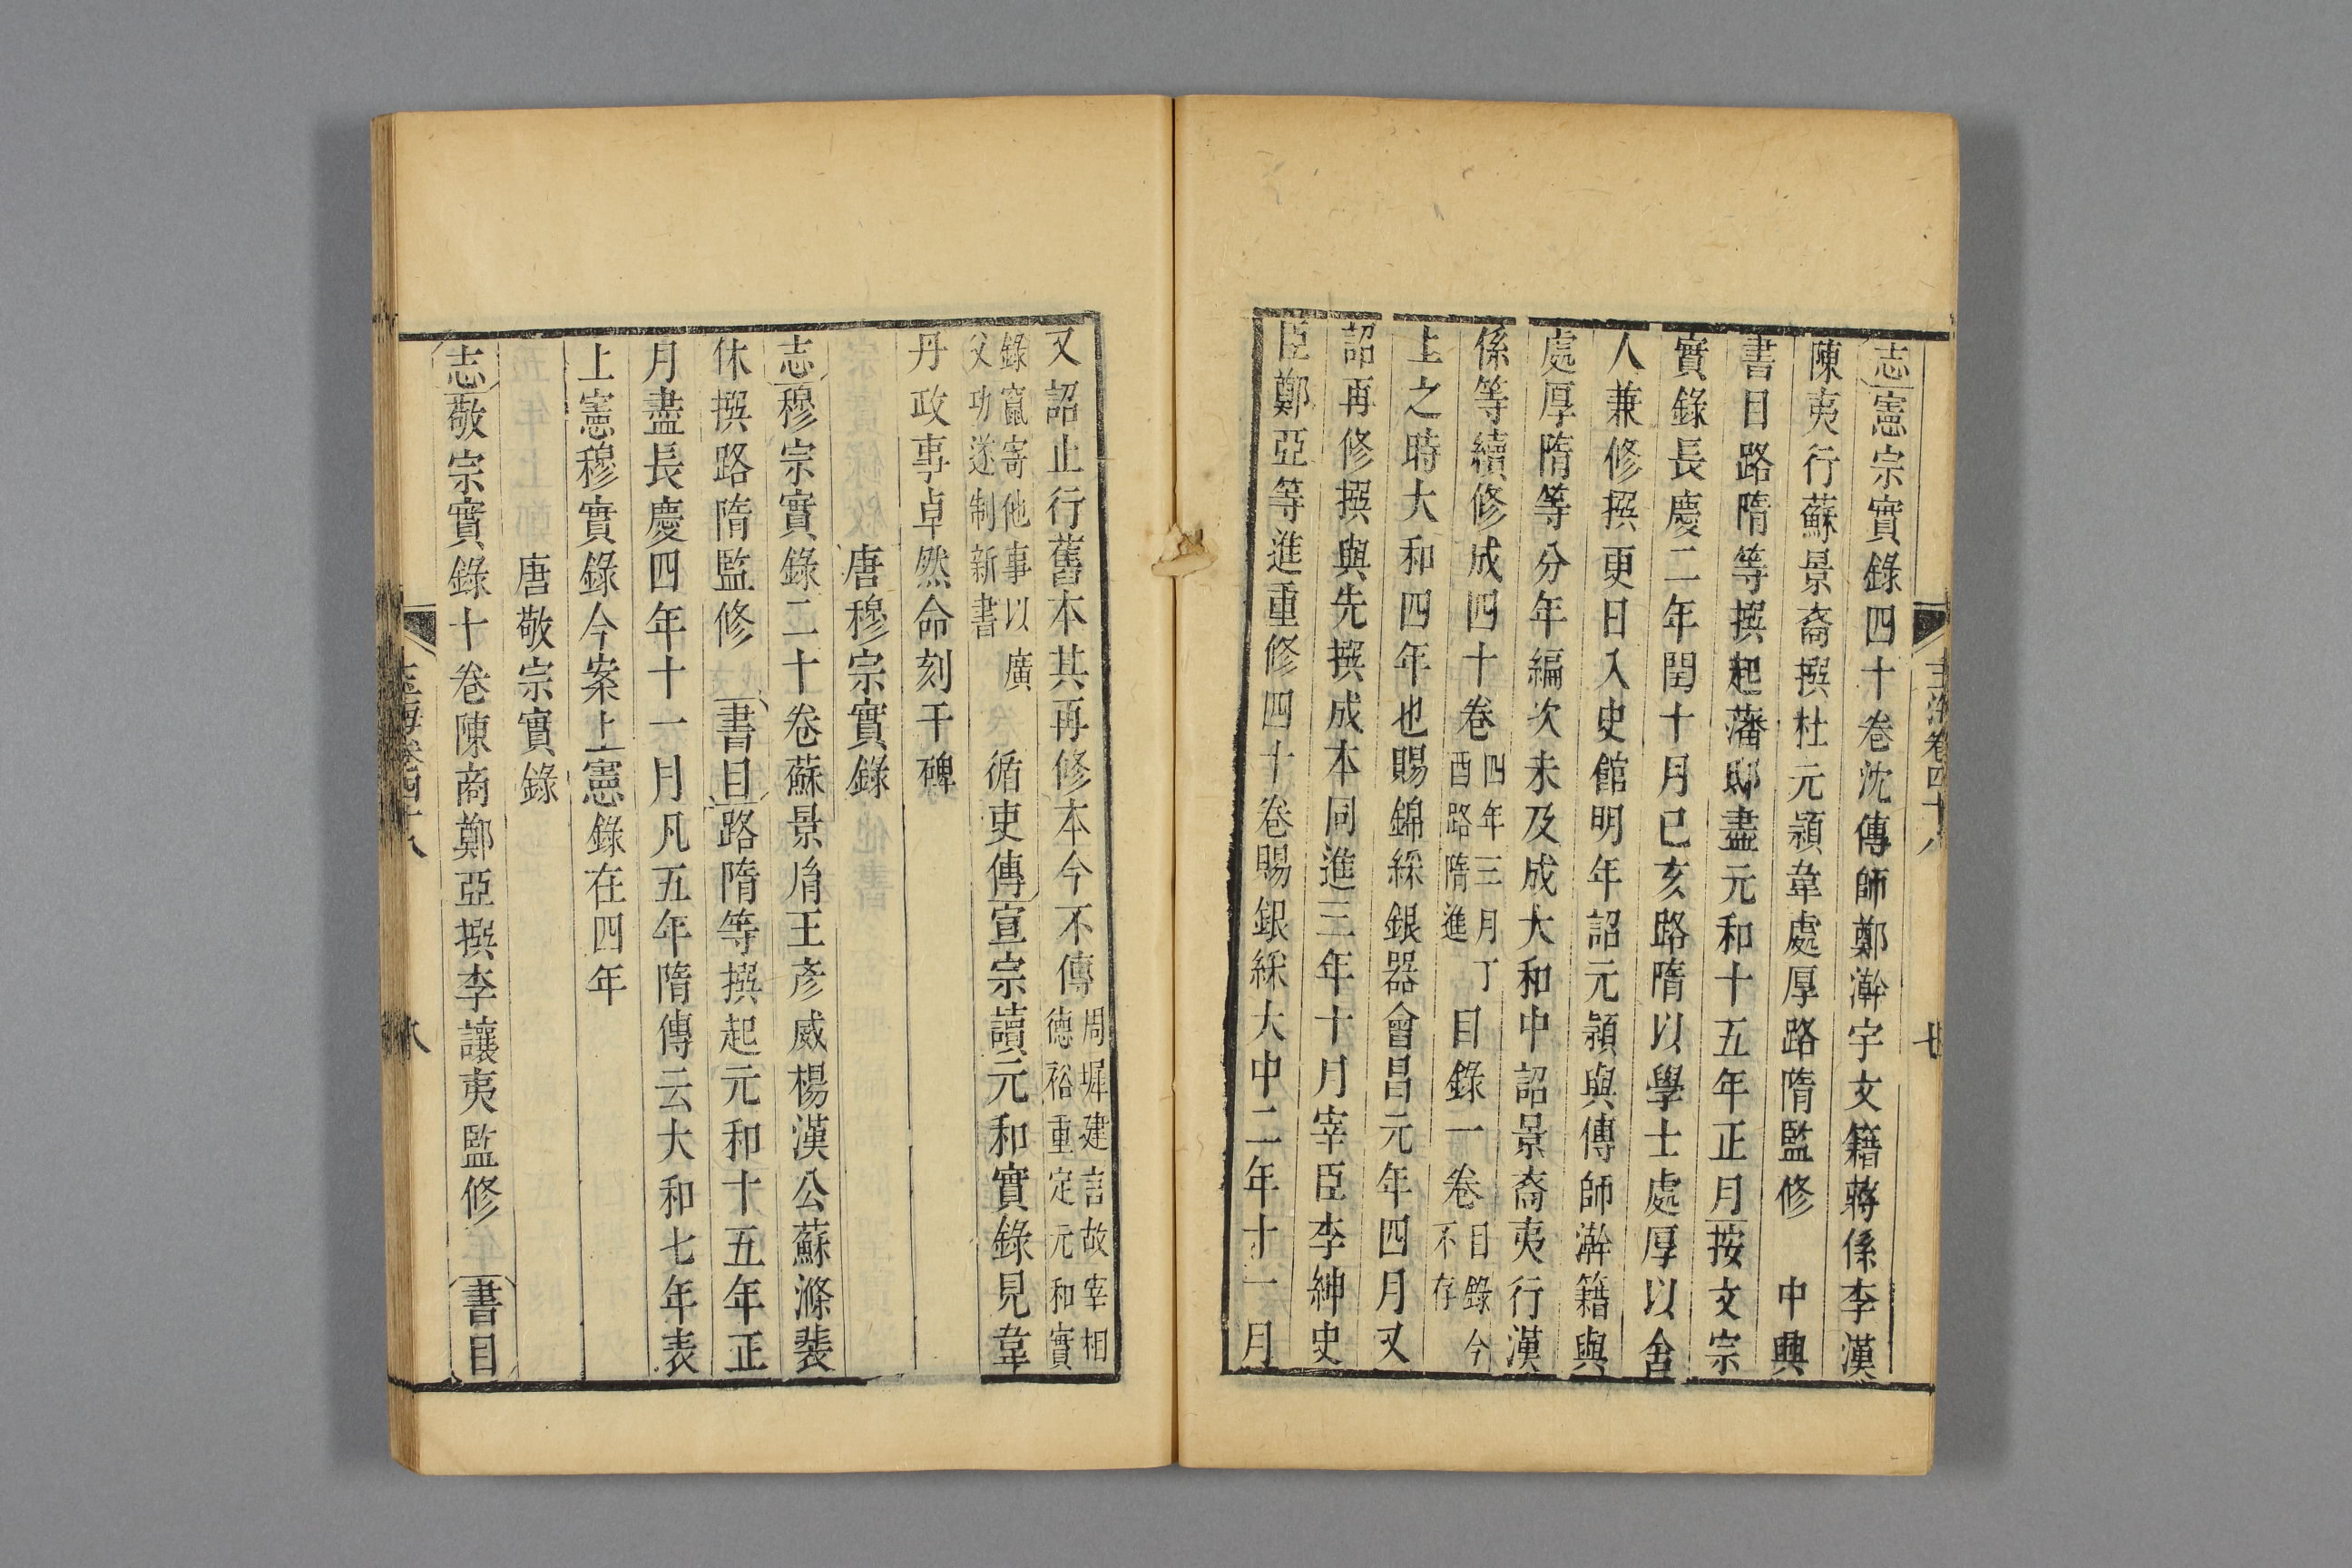 志憲宗實錄四十卷沈傳師鄭澣宇文籍蔣係李漢
陳夷行蘇景裔撰杜元潁韋處厚路隋監修 中興
書目路隋等撰起藩邸盡元和十五年正月按文宗
實錄長慶二年閏十月已亥路隋以學士處厚以舍
人兼修撰更日入史館明年詔元潁與傳師澣籍與
處厚隋等分年編次未及成大和中詔景裔夷行漢
係等續修成四十卷四年三月丁酉路隋進目錄一卷目錄今不存
上之時大和四年也賜錦綵銀器會昌元年四月又
詔再修撰與先撰成本同進三年十月宰臣李紳史
臣鄭亞等進重修四十卷賜銀綵大中二年十一月
又詔止行舊本其再修本今不傳周墀建言故宰相德裕重定元和實
錄竄寄他事以廣父功遂制新書 循吏傳宣宗讀元和實錄見韋
丹政事卓然命刻干碑
唐穆宗實錄
志穆宗實錄二十卷蘇景胤王彥威楊漢公蘇滌裴
休撰路隋監修 書目路隋等撰起元和十五年正
月盡長慶四年十一月凡五年隋傳云大和七年表
上憲穆實錄今案上憲錄在四年
唐敬宗實錄
志敬宗實錄十卷陳商鄭亞撰李讓夷監修 書目
玉海卷四十八